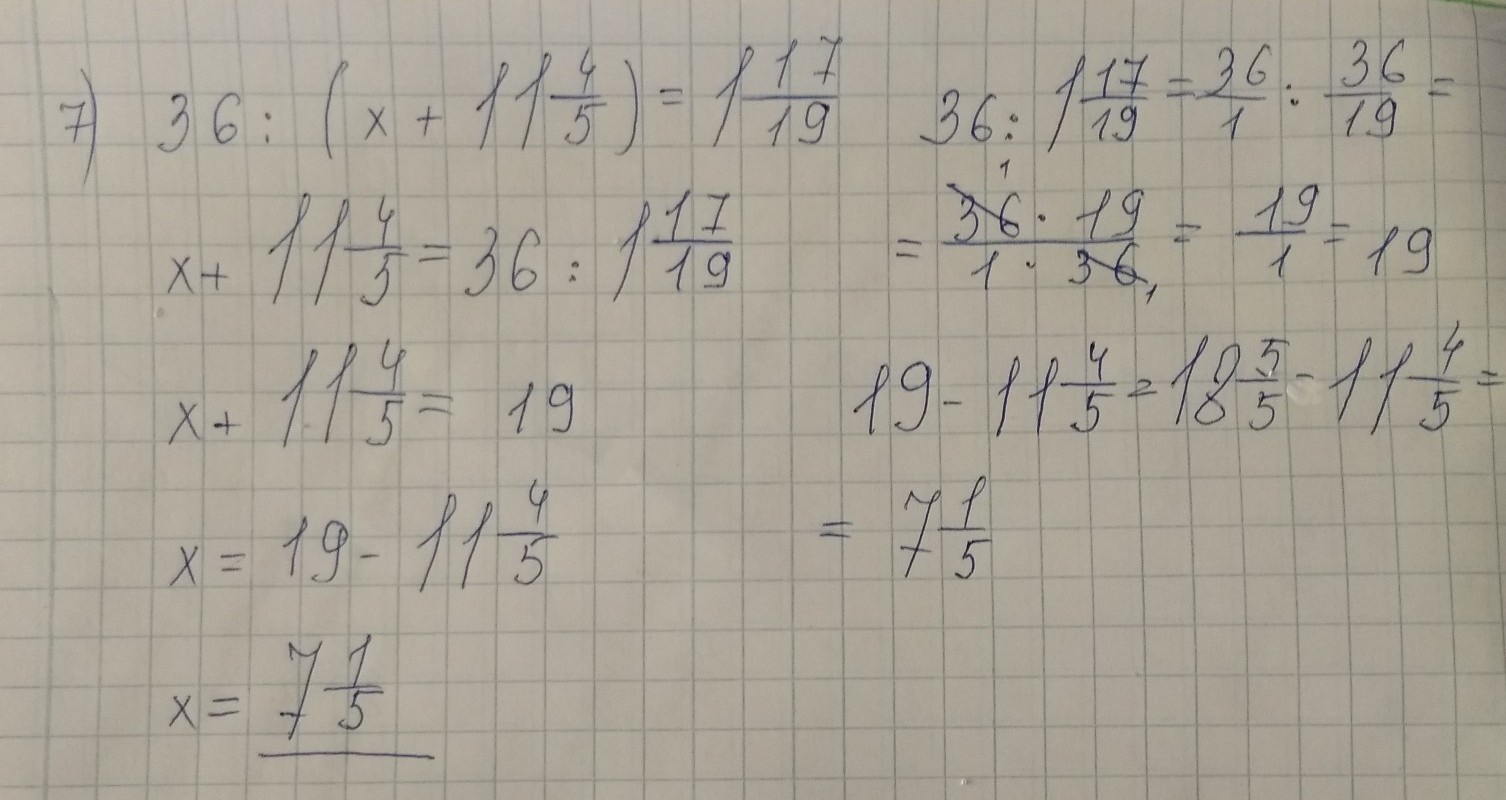 7) 36 : (x + 11 4/5) = 1 17/19
x + 11 4/5 = 36 : 1 17/19
x + 11 4/5 = 19
x = 19 - 11 4/5
x = 7 1/5
36 : 1 17/19 = 36/1 : 36/19 =
= 36 · 19 / 1 · 36 = 19/1 = 19
1
1
19 - 11 4/5 = 18 5/5 - 11 4/5 =
= 7 1/5